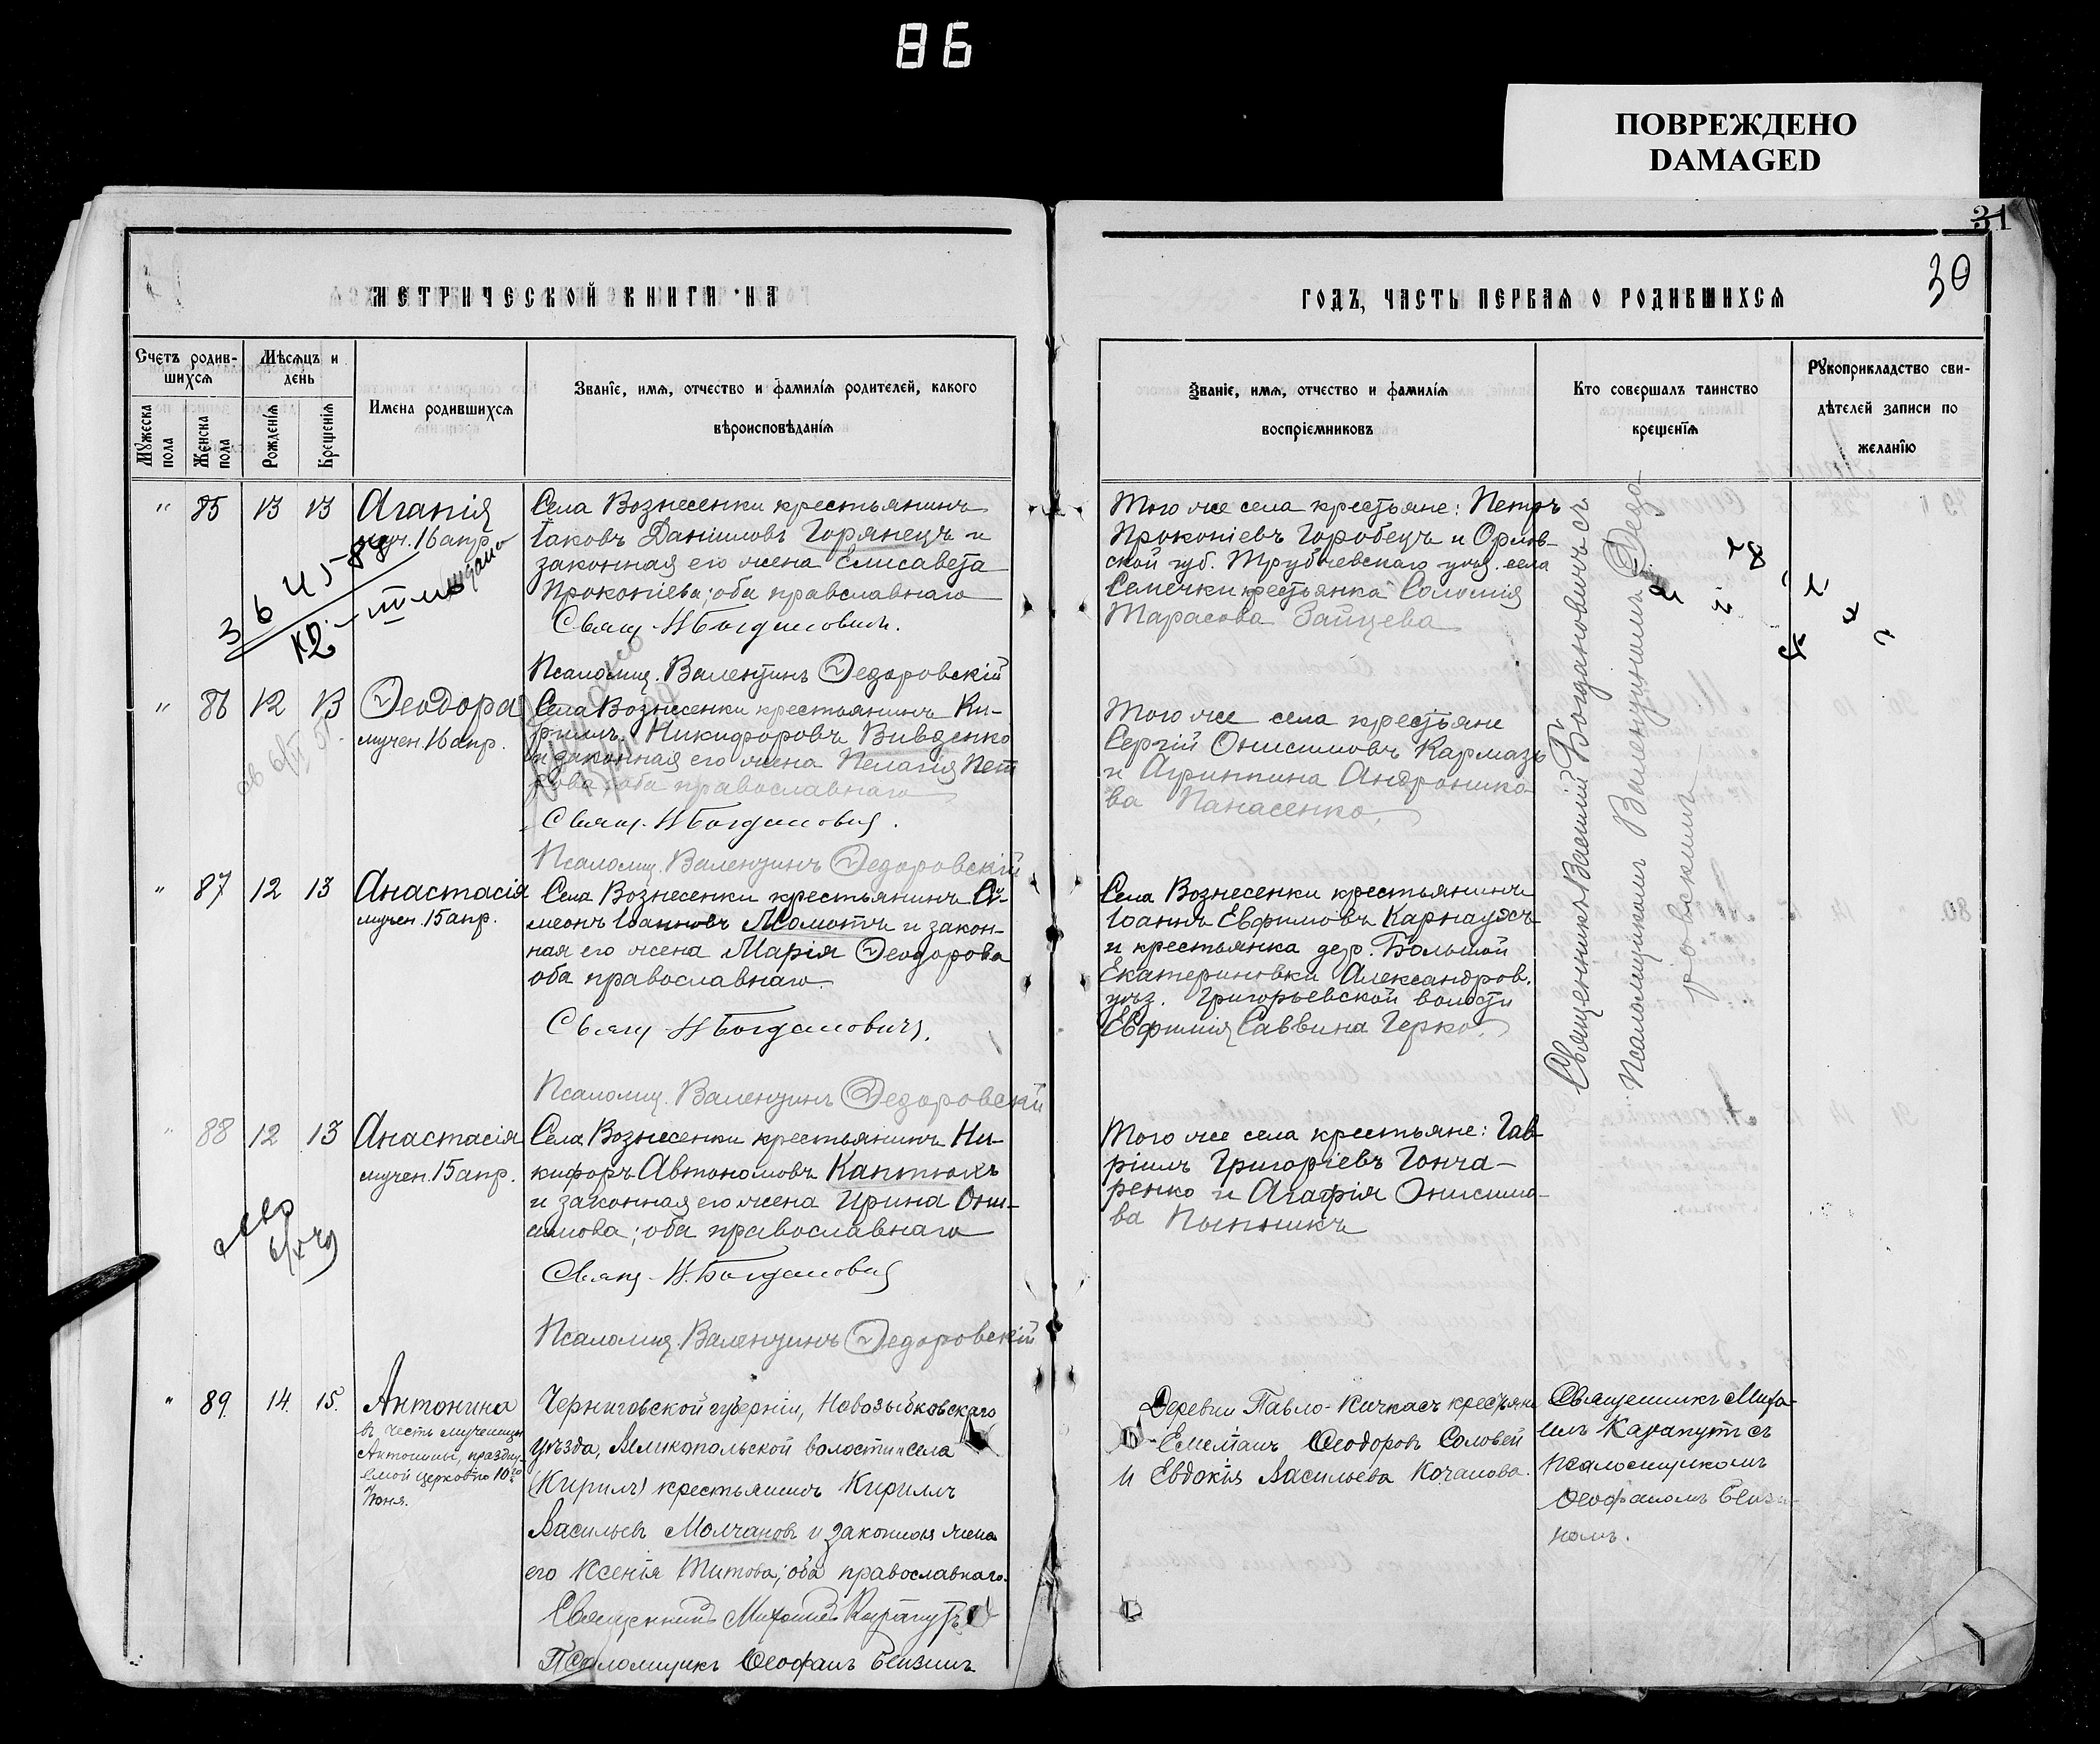 86
ПОВРЕЖДЕНО
DAMAGED
31
30
МЕТРИЧЕСКОЙ КНИГИ НА
ГОДЪ, ЧАСТЬ ПЕРВАЯ О РОДИВШИХСЯ
Счетъ родив-
шихся
Мужеска
пола
Женска
пола
Мѣсяцъ и
день
Рожденія
Крещенія
Имена родившихся
Званіе, имя, отчество и фамилія родителей, какого
вѣроисповѣданія
Званіе, имя, отчество и фамилія
воспріемниковъ
Кто совершалъ таинство
крещенія
Рукоприкладство сви-
дѣтелей записи по
желанію
" 85 13 13 Агапія
муч. 16 апр.
Села Вознесенки крестьянинъ
Іаковъ Даніиловъ Горянецъ и
законная его жена Елисавета
Прокопіева; оба православнаго
Свящ. Н Богдановичъ.
Псаломщ. Валентинъ Ѳедоровскій
Того же села крестьяне: Петръ
Прокопіевъ Горобецъ и Орлов-
ской губ. Трубчевскаго уѣзд. села
Семечки крестьянка Саломія
Тарасова Зайцева
Священникъ Василій Богдановичъ съ
Псаломщикомъ Валентиномъ Ѳедо-
ровскимъ
" 86 12 13 Ѳеодора
мучен. 16 апр.
Села Вознесенки крестьянинъ Ки-
риллъ Никифоровъ Вивденко
и законная его жена Пелагія Пет
рова оба православнаго
Свящ. Н Богдановичъ.
Псаломщ. Валентинъ Ѳедоровскій
Того же села крестьяне
Сергій Онисимовъ Кармазь
и Агриппина Андроника
ва Панасенко.
" 87 12 13 Анастасія
мучен. 15 апр.
Села Вознесенки крестьянинъ Си-
меонъ Іоанновъ и закон-
ная его жена Марія Ѳеодорова
оба православнаго
Свящ Н Богдановичъ.
Псаломщ. Валентинъ Ѳедоровскій
Села Вознесенки крестьянинъ
Іоаннъ Евфимовъ Карнаухъ
и крестьянка дер. Большой
Екатериновки Александров.
уѣз. Григорьевской волости
Евфимія Саввина Герко.
" 88 12 13 Анастасія
мучен. 15 апр.
Села Вознесенки крестьянинъ Ни-
кифоръ Автономовъ Каптюхъ
и законная его жена Ирина Они-
симова; оба православнаго
Свящ. Н. Богдановичъ
Псаломщ. Валентинъ Ѳедоровскій
Того же села крестьяне: Гав
ріилъ Григоріевъ Гонча-
ренко и Агафія Онисимо-
ва
" 89. 14. 15. Антонина
въ честь мученицы
Антонины, праздну-
емой церковью 10го
Іюня.
Черниговской губерніи, Новозыбковскаго
уѣзда, волости села
(Кирилъ) крестьянинъ Кириллъ
Васильевъ Молчановъ и законная жена
его Ксенія Титова; оба православнаго.
Священникъ Михаилъ Карапутъ
Псаломщикъ Ѳеофанъ
Деревни Павло-Кичкасъ крестьяне
Емеліанъ Ѳеодоровъ Соловей
и Евдокія Васильева Кочанова.
Священникъ Миха-
илъ Карапутъ съ
псаломщикомъ
Ѳеофаномъ
номъ.